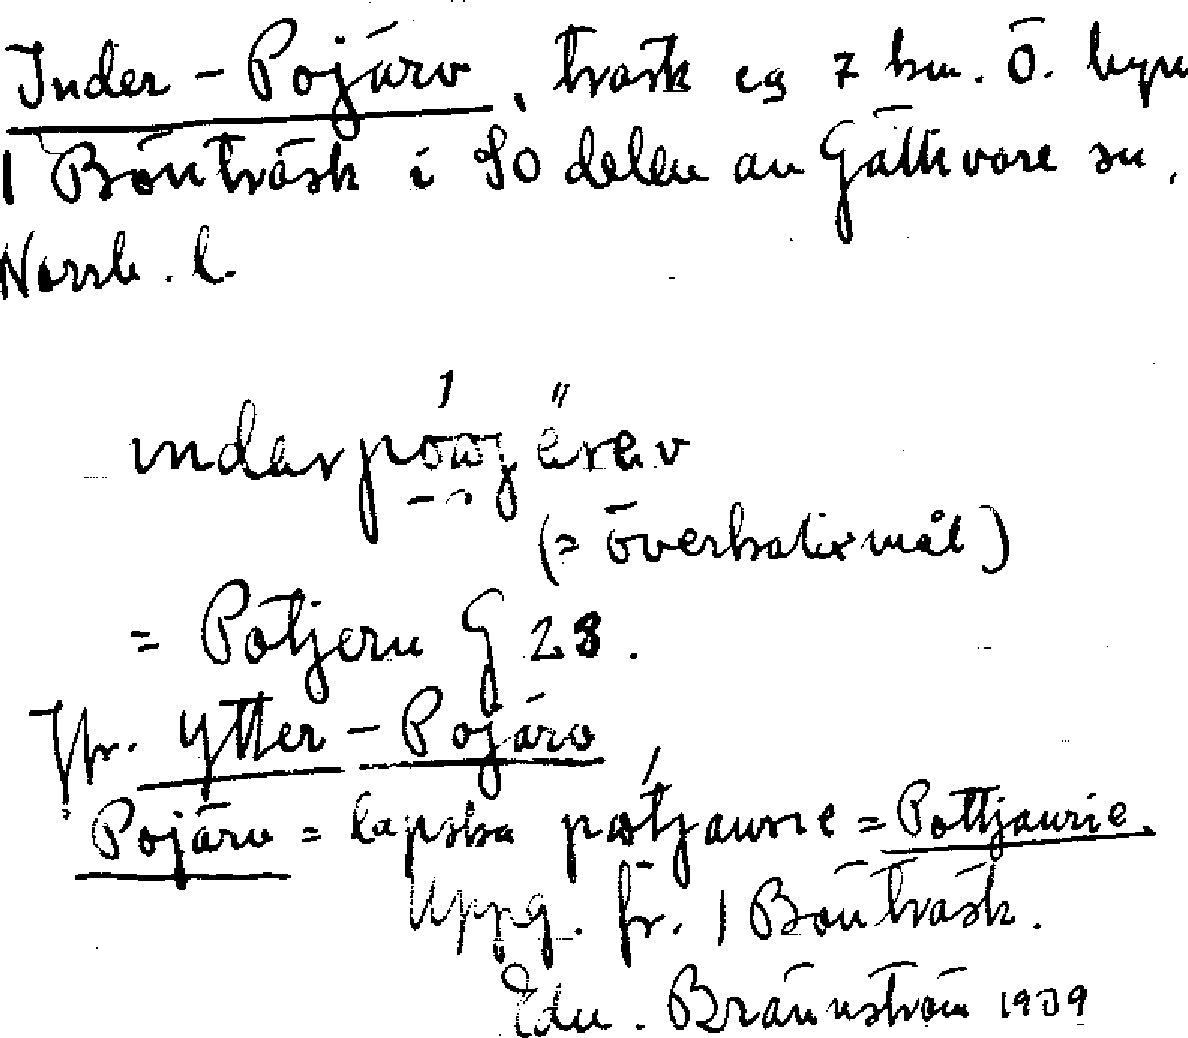 Inder-Pojärv, träsk eg 7 km. Ö. byn
1 Bönträsk i SO delen av Gällivare sn,
Norrb. l.
(= överkalixmål)
= Potjeru G 28.
Jfr. Ytter-Pojärv
Pojärv = lapska påtjaurie = Pottjaurie.
Uppg. fr. 1 Bönträsk.
Edv. Brännström 1939